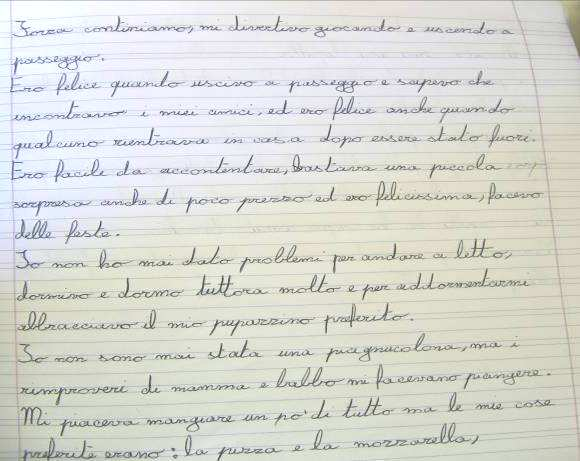 Forza continiamo, mi divertivo giocando e uscendo a
passeggio.
Ero felice quando uscivo a passeggio e sapevo che
incontravo i miei amici, ed ero felice anche quando
qualcuno rientrava in casa dopo essere stato fuori.
Ero facile da accontentare, bastava una piccola
sorpresa anche di poco prezzo ed ero felicissima, facevo
delle feste.
Io non ho mai dato problemi per andare a letto,
dormivo e dormo tuttora molto e per addormentarmi
abbracciavo il mio pupazzino preferito.
Io non sono mai stata una piagnucolona, ma i
rimproveri di mamma e babbo mi facevano piangere.
Mi piaceva mangiare un po' di tutto ma le mie cose
preferite erano: la pizza e la mozzarella,